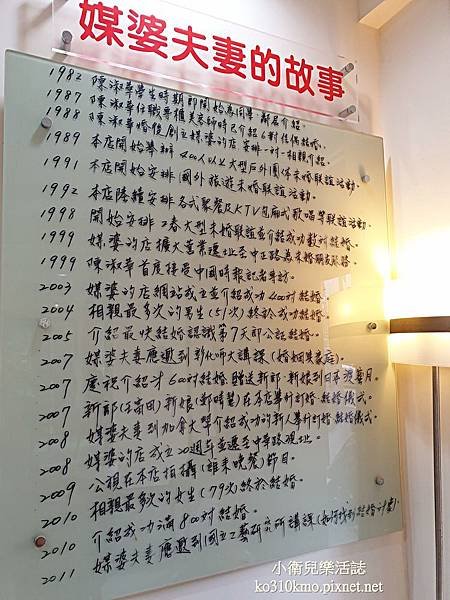 媒婆夫妻的故事
1982 陳淑華學生時期即開始為同學、鄰居介紹。
1987 陳淑華任職專櫃美容師時已介紹6對佳偶結婚。
1988 陳淑華婚後創立媒婆的店 安排一對一相親介紹。
1989 本店開始舉辦400人以上大型戶外團体未婚聯誼活動。
1991 本店開始安排國外旅遊未婚聯誼活動。
1992 本店陸續安排各式聚餐及KTV包廂式歌唱聯誼活動。
1998 開始安排 大型未婚聯誼並介紹成功數對結婚。
1999 媒婆的店擴大營業遷址至中正路為未婚朋友服務。
1999 陳淑華首度接受中國時報記者專訪。
2003 媒婆的店網站成立並介紹成功400對結婚。
2004 相親最多次的男生(51次)終於成功結婚。
2005 介紹最快結婚認識第7天即公証結婚。
2007 媒婆夫妻應邀到彰化師大講課(婚姻與家庭)。
2007 慶祝介紹才600對結婚 贈送新郎、新娘到日本渡蜜月。
2007 新郎 新娘 在本店舉行訂婚、結婚儀式。
2008 媒婆夫妻到加拿大學介紹成功的新人舉行訂婚、結婚儀式。
2008 媒婆的店成立20週年並遷至中華路現址。
2009 公視在本店拍攝(誰來晚餐)節目。
2010 相親最多次的女生(79次)終於結婚。
2010 介紹成功滿800對結婚。
2011 媒婆夫妻應邀到國立工藝研究所講課
小衛兒樂活誌
ko310kmo.pixnet.net